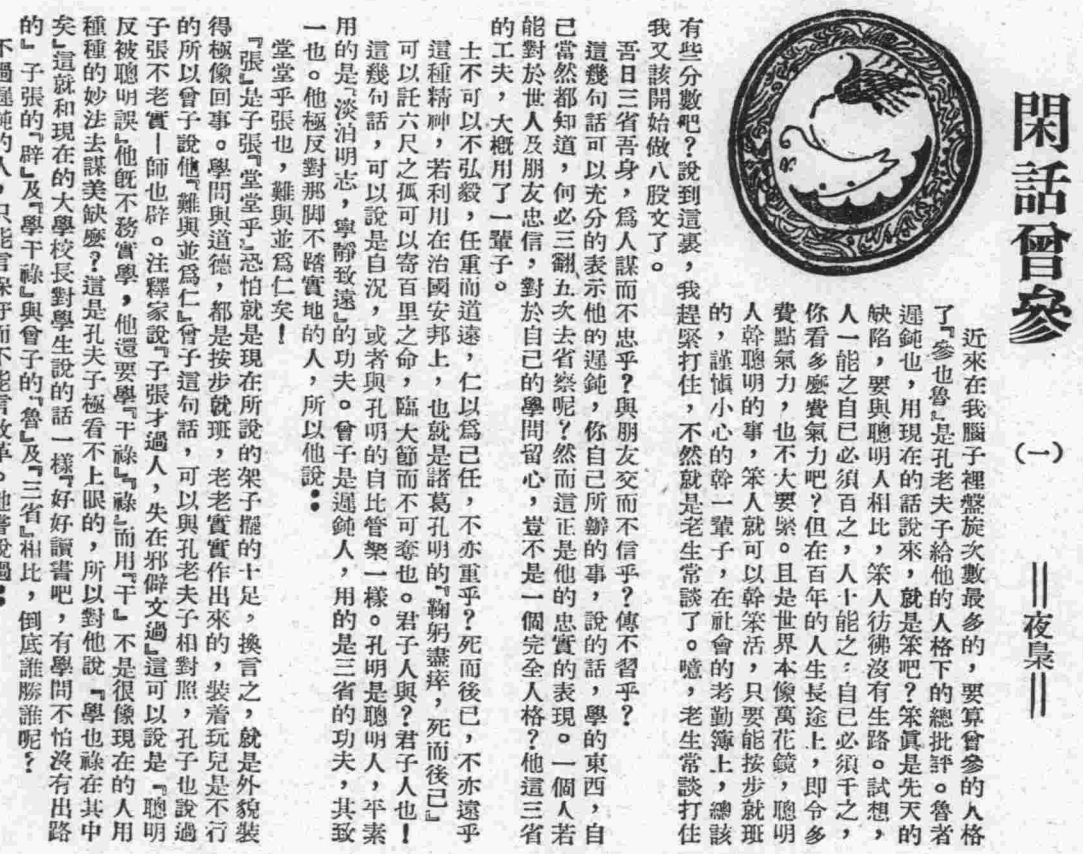 閑話曾參
(一)
夜梟
近來在我腦子裡盤旋次數最多的，要算曾參的人格
了『參也魯』是孔老夫子給他的人格下的總批評。魯者
遲鈍也，用現在的話說來，就是笨吧？笨眞是先天的
缺陷，要與聰明人相比，笨人彷彿沒有生路。試想，
人一能之自己必須百之，人十能之：自己必須千之，
你看多麽費氣力吧？但在百年的人生長途上，即令多
費點氣力，也不大要緊。且是世界本像萬花鏡，聰明
人幹聰明的事，笨人就可以幹笨活，只要能按步就班
的，謹愼小心的幹一輩子，在社會的考勤簿上，總該
有些分數吧？說到這裏，我趕緊打住，不然就是老生常談了。噫，老生常談打住
我又該開始做八股文了。
吾日三省吾身，爲人謀而不忠乎？與朋友交而不信乎？傳不習乎？
這幾句話可以充分的表示他的遲鈍，你自己所辦的事，說的話，學的東西，自
己當然都知道，何必三翻五次去省察呢？然而這正是他的忠實的表現。一個人若
能對於世人及朋友忠信，對於自己的學問留心，豈不是一個完全人格？他這三省
的工夫，大槪用了一輩子。
士不可以不弘毅，任重而道遠，仁以爲己任，不亦重乎？死而後已，不亦遠乎
這種精神，若利用在治國安邦上，也就是諸葛孔明的『鞠躬盡瘁，死而後已』
可以託六尺之孤可以寄百里之命，臨大節而不可奪也。君子人與？君子人也！
這幾句話，可以說是自况，或者與孔明的自比管樂一樣。孔明是聰明人，平素
用的是『淡泊明志，寧靜致遠』的功夫。曾子是遲鈍人，用的是三省的功夫，其致
一也。他極反對那脚不踏實地的人，所以他說：
堂堂乎張也，難與並爲仁矣！
『張』是子張『堂堂乎』恐怕就是現在所說的架子擺的十足，換言之，就是外貌裝
得極像回事。學問與道德，都是按步就班，老老實實作出來的，裝着玩兒是不行
的所以曾子說他『難與並爲仁』曾子這句話，可以與孔老夫子相對照，孔子也說過
子張不老實—師也辟。注釋家說『子張才過人，失在邪僻文過』這可以說是『聰明
反被聰明誤』他旣不務實學，他還要學『干祿』『祿』而用『干』不是很像現在的人用
種種的妙法去謀美缺麽？這是孔夫子極看不上眼的，所以對他說『學也祿在其中
矣』這就和現在的大學校長對學生說的話一樣『好好讀書吧，有學問不怕沒有出路
的』子張的『辟』及『學干祿』與曾子的『魯』及『三省』相比，倒底誰勝誰呢？
不過遲鈍的人，只能言保守而不能言改革。他曾說過：